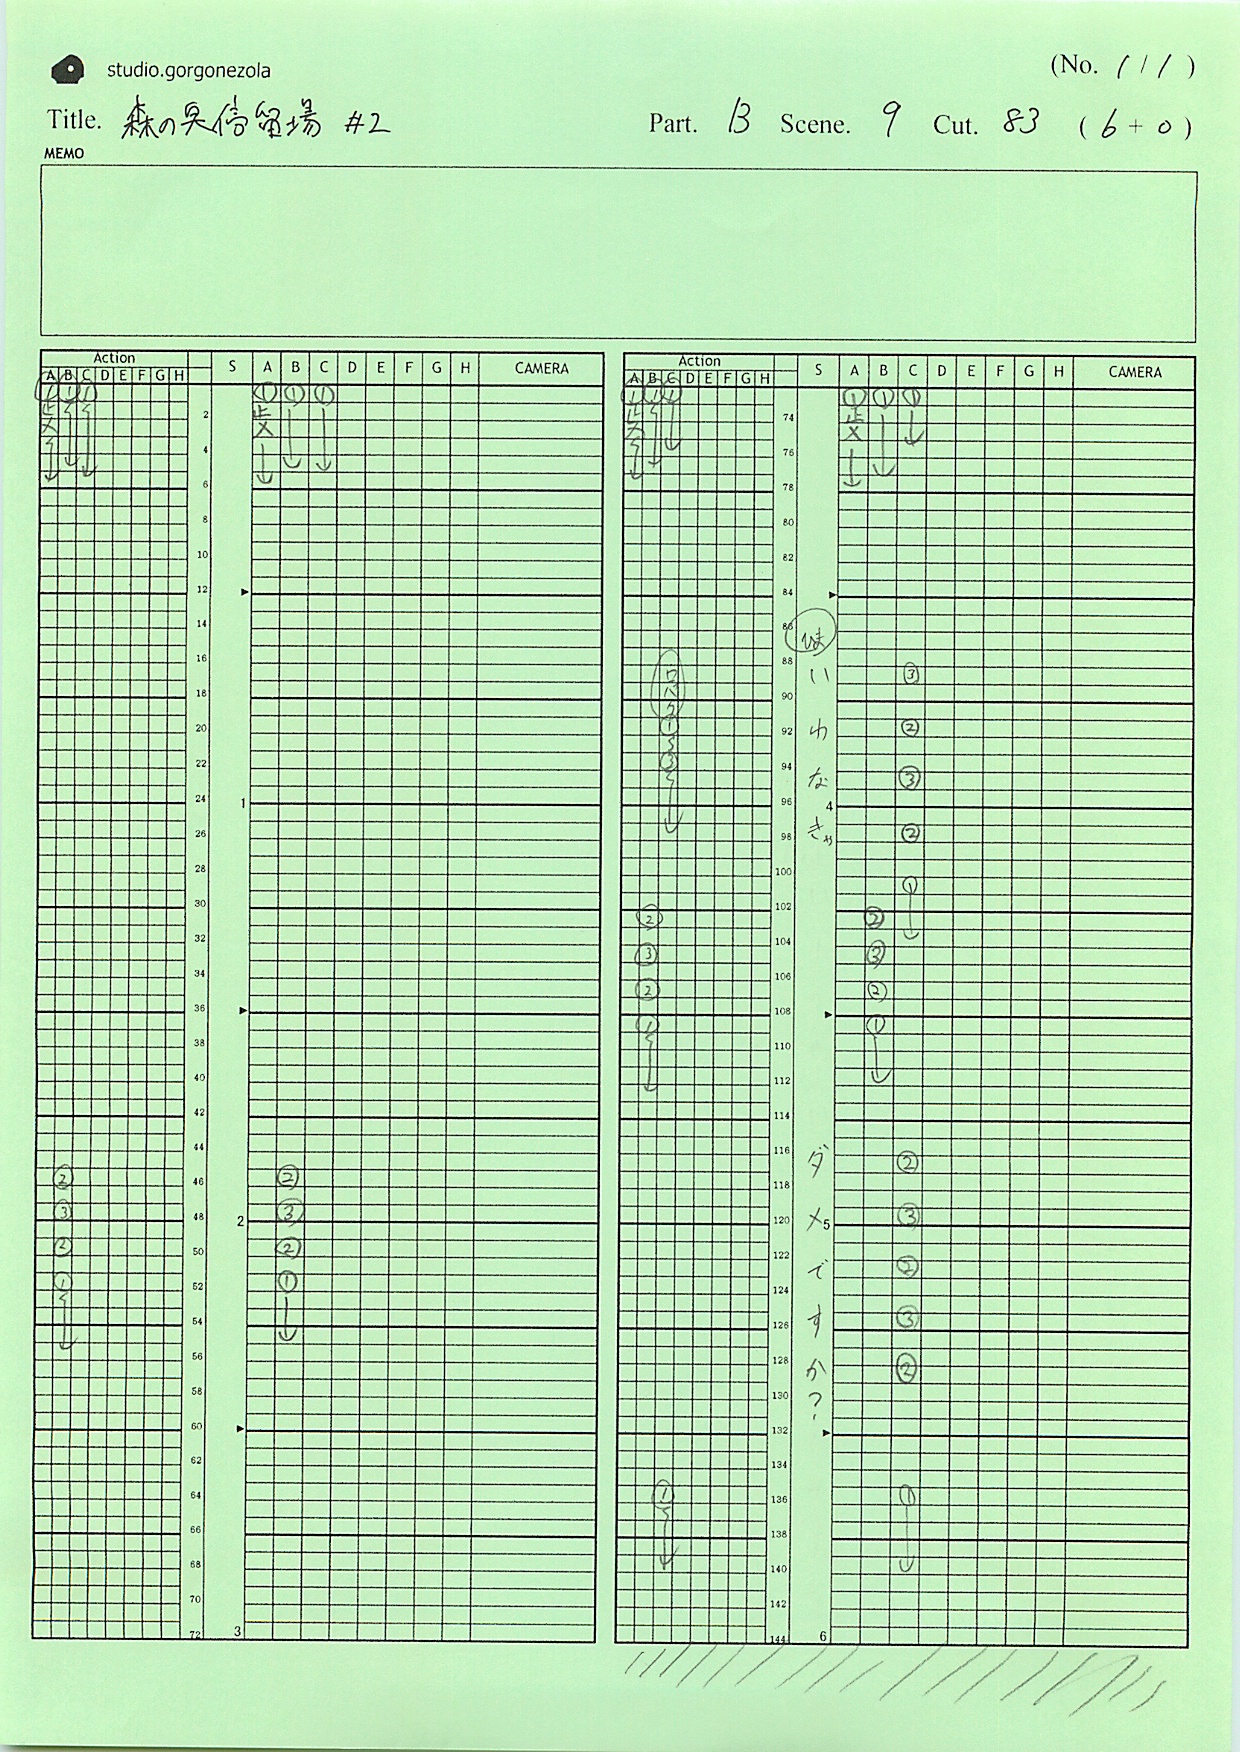 studio.gorgonezola
(No. 1 / 1 )
Title. 森の奥停留場 #2
Part. B Scene. 9 Cut. 83 ( 6 + 0 )
MEMO
Action
A B C D E F G H S A B C D E F G H CAMERA
① ① ① ① ① ①
止 止
メ メ
2
4
6
8
10
12
14
16
18
20
22
24 1
26
28
30
32
34
36
38
40
42
44
46 ② ②
48 ③ 2 ③
50 ② ②
52 ① ①
54
56
58
60
62
64
66
68
70
72 3
Action
A B C D E F G H S A B C D E F G H CAMERA
① ① ① ① ① ①
止 止
メ メ
74
76
78
80
82
84
86 ひま
88 い ③
口パク
90
① 92 わ ②
③ 94 な ③
96 4
98 きゃ ②
100 ①
102 ② ②
104 ③ ③
106 ② ②
108 ① ①
110
112
114
116 ダ ②
118
120 メ 5 ③
122 で ②
124
126 す ③
128 か ②
130 ?
132
134
136 ① ①
138
140
142
144 6